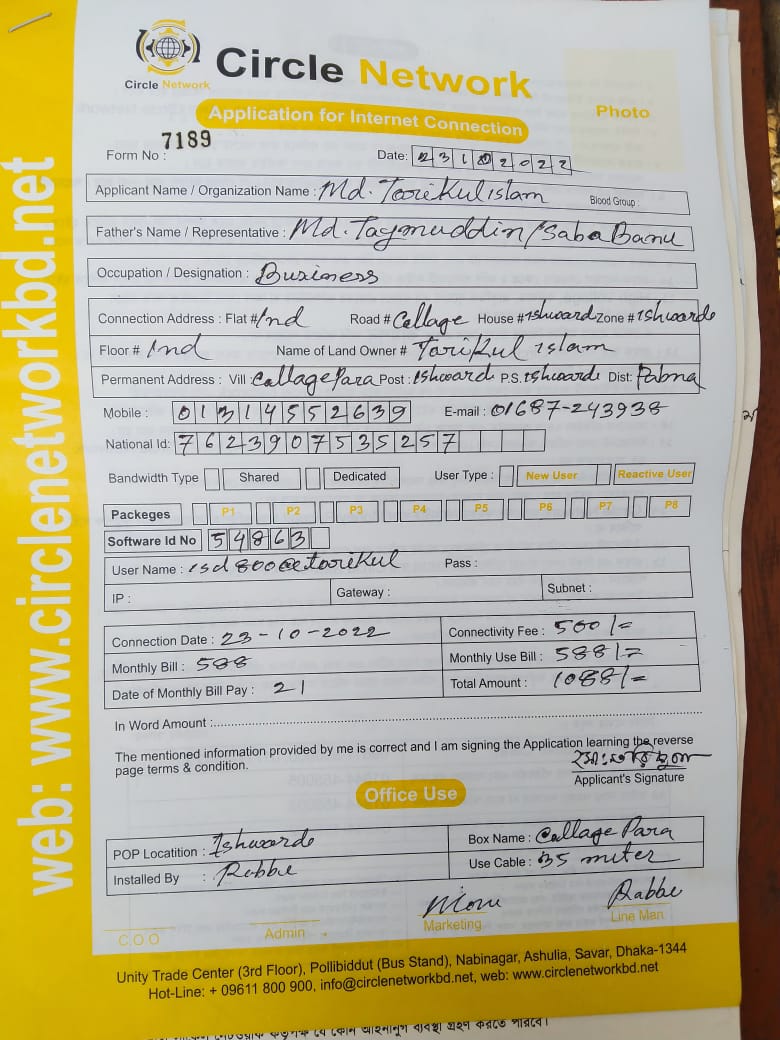 web: www.circlenetworkbd.net
Circle Network
Circle Network
Application for Internet Connection
Photo
Form No : 7189
Date: 23102022
Applicant Name / Organization Name : Md. Torikul islam Blood Group :
Father's Name / Representative : Md. Taymuddin / Saba Banu
Occupation / Designation : Business
Connection Address : Flat # Ind Road # Collage House # Ishward Zone # Ishwardi
Floor # Ind Name of Land Owner # Torikul islam
Permanent Address : Vill : Collage Para Post : Ishward P.S. Ishwardi Dist: Pabna
Mobile : 01314552639 E-mail : 01687-243938
National Id: 7623907535257
Bandwidth Type Shared Dedicated User Type : New User Reactive User
Packeges P1 P2 P3 P4 P5 P6 P7 P8
Software Id No 54863
User Name : isd800@torikul Pass :
IP : Gateway : Subnet :
Connection Date : 23-10-2022 Connectivity Fee : 500/=
Monthly Bill : 588 Monthly Use Bill : 588/=
Date of Monthly Bill Pay : 21 Total Amount : 1088/=
In Word Amount :
The mentioned information provided by me is correct and I am signing the Application learning the reverse
page terms & condition.
Applicant's Signature
Office Use
POP Locatition : Ishwardi Box Name : Collage Para
Installed By : Rabbe Use Cable : 35 meter
Rabbe
C.O.O Admin Marketing Line Man
Unity Trade Center (3rd Floor), Pollibiddut (Bus Stand), Nabinagar, Ashulia, Savar, Dhaka-1344
Hot-Line: + 09611 800 900, info@circlenetworkbd.net, web: www.circlenetworkbd.net
যে কোন আইনানুগ ব্যবস্থা গ্রহণ করতে পারবে।